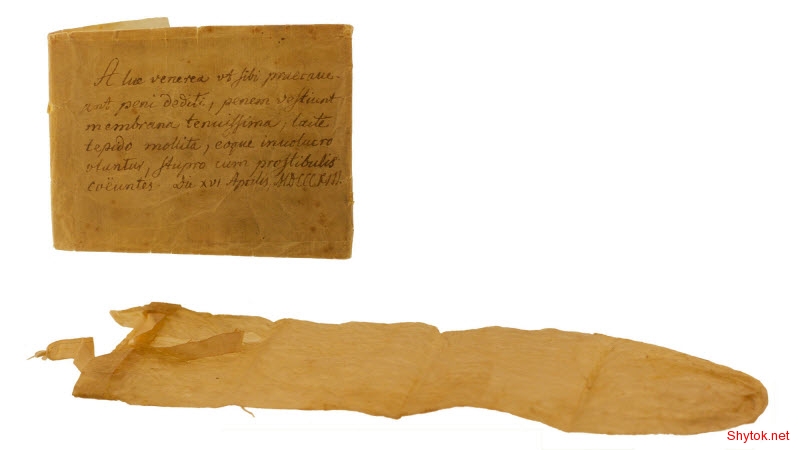 A lue venerea ut sibi praecave-
ant peni dediti, penem vestiunt
membrana tenuissima, lacte
tepido mollita, eoque involucro
utuntur, stupro cum prostibulis
coëuntes. Die XVI Aprilis
Shytok.net